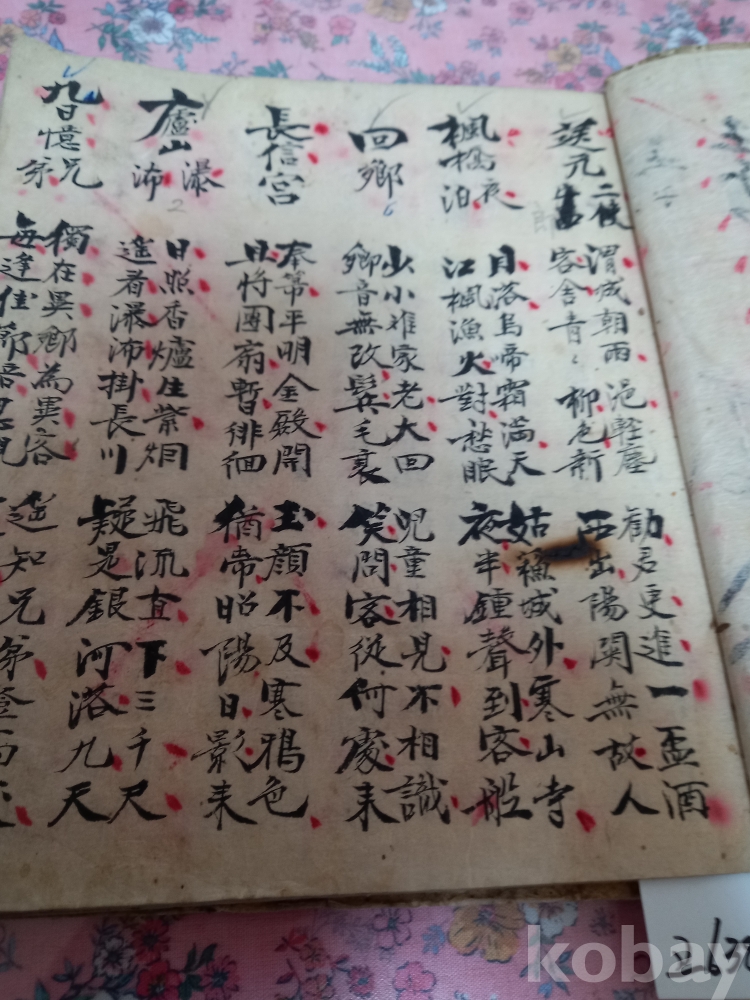 送元二使
渭城朝雨浥輕塵
客舍青〻柳色新
勸君更進一盃酒
西出陽関無故人
楓橋夜泊
月落烏啼霜滿天
江楓漁火對愁眠
姑蘓城外寒山寺
夜半鍾聲到客船
回鄉
少小难家老大回
鄉音無改鬂毛衰
児童相見不相識
笑問客從何處来
長信宮
奉箒平明金殿開
且將團扇暫徘徊
玉顏不及寒鴉色
猶帶昭陽日影来
廬山瀑沛
日照香爐生紫烟
遙看瀑沛掛長川
飛流直下三千尺
疑是銀河落九天
九日憶兄弟
獨在異鄉為異客
每逢佳節倍思親
遙知兄弟登高
kobay